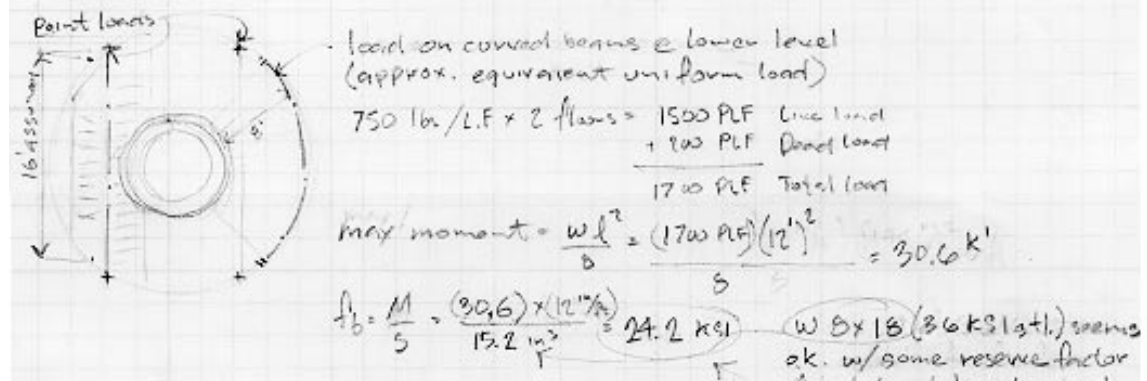 Point loads
load on curved beams @ lower level
(approx. equivalent uniform load)
16' assumed
8'
750 lbs/L.F x 2 floors = 1500 PLF Live load
+ 200 PLF Dead load
1700 PLF Total load
max moment = wl²/8 = (1700 PLF)(12')²/8 = 30.6 k'
fb = M/S = (30,6) x (12"/ft)/15.2 in³ = 24.2 KSI
W 8x18 (36 KSI stl.) seems
ok. w/ some reserve factor